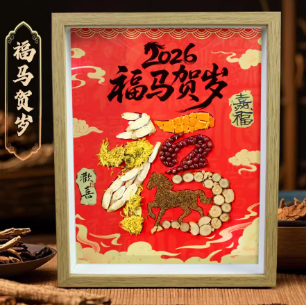 福马贺岁
2026
福马贺岁
嘉福
福
歡喜